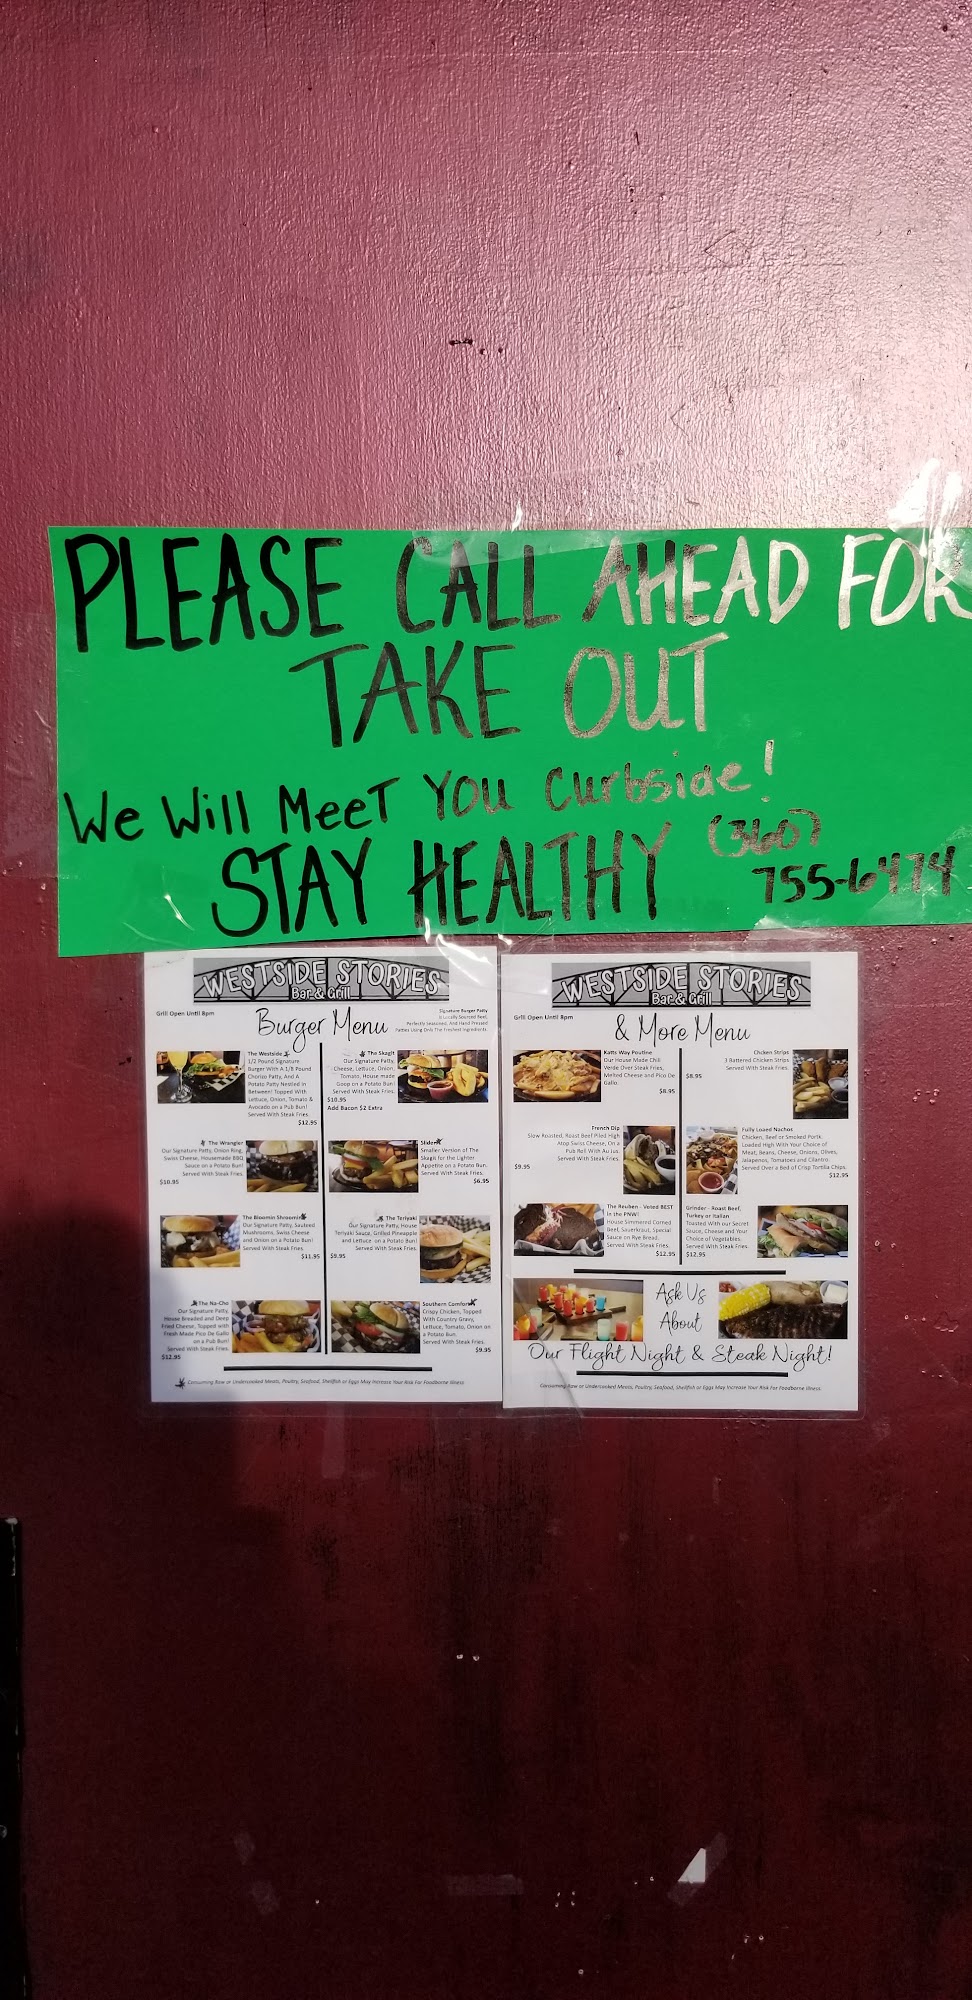 PLEASE CALL AHEAD FOR
TAKE OUT
We Will Meet You Curbside!
STAY HEALTHY (360)
755-6474
WESTSIDE STORIES
Bar & Grill
Grill Open Until 8pm
Burger Menu
Signature Burger Patty
is Locally Sourced Beef,
Perfectly Seasoned, And Hand Pressed
Patties Using Only The Freshest Ingredients.
The Westside
1/2 Pound Signature
Burger With A 1/8 Pound
Chorizo Patty, And A
Potato Patty Nestled in
Between! Topped With
Lettuce, Onion, Tomato &
Avocado on a Pub Bun!
Served With Steak Fries.
$12.95
The Skagit
Our Signature Patty,
Cheese, Lettuce, Onion,
Tomato, House made
Goop on a Potato Bun!
Served With Steak Fries.
$10.95
Add Bacon $2 Extra
The Wrangler
Our Signature Patty, Onion Ring,
Swiss Cheese, Housemade BBQ
Sauce on a Potato Bun!
Served With Steak Fries.
$10.95
Slider
Smaller Version of The
Skagit for the Lighter
Appetite on a Potato Bun.
Served With Steak Fries.
$6.95
The Bloomin Shroomin
Our Signature Patty, Sauteed
Mushrooms, Swiss Cheese
and Onion on a Potato Bun!
Served With Steak Fries
$11.95
The Teriyaki
Our Signature Patty, House
Teriyaki Sauce, Grilled Pineapple
and Lettuce on a Potato Bun!
Served With Steak Fries.
$9.95
The Na-Cho
Our Signature Patty,
House Breaded and Deep
Fried Cheese, Topped with
Fresh Made Pico De Gallo
on a Pub Bun!
Served With Steak Fries.
$12.95
Southern Comfort
Crispy Chicken, Topped
With Country Gravy,
Lettuce, Tomato, Onion on
a Potato Bun.
Served With Steak Fries.
$9.95
Consuming Raw or Undercooked Meats, Poultry, Seafood, Shellfish or Eggs May Increase Your Risk For Foodborne Illness
WESTSIDE STORIES
Bar & Grill
Grill Open Until 8pm
& More Menu
Katts Way Poutine
Our House Made Chili
Verde Over Steak Fries,
Melted Cheese and Pico De
Gallo.
$8.95
Chicken Strips
3 Battered Chicken Strips
Served With Steak Fries.
$8.95
French Dip
Slow Roasted, Roast Beef Piled High
Atop Swiss Cheese, On a
Pub Roll With Au Jus.
Served With Steak Fries.
$9.95
Fully Loaed Nachos
Chicken, Beef or Smoked Pork.
Loaded High With Your Choice of
Meat, Beans, Cheese, Onions, Olives,
Jalapenos, Tomatoes and Cilantro.
Served Over a Bed of Crisp Tortilla Chips.
$12.95
The Reuben - Voted BEST
in the PNW!
House Simmered Corned
Beef, Sauerkraut, Special
Sauce on Rye Bread.
Served With Steak Fries.
$12.95
Grinder - Roast Beef,
Turkey or Italian
Toasted With our Secret
Sauce, Cheese and Your
Choice of Vegetables.
Served With Steak Fries.
$12.95
Ask Us
About
Our Flight Night & Steak Night!
Consuming Raw or Undercooked Meats, Poultry, Seafood, Shellfish or Eggs May Increase Your Risk For Foodborne Illness